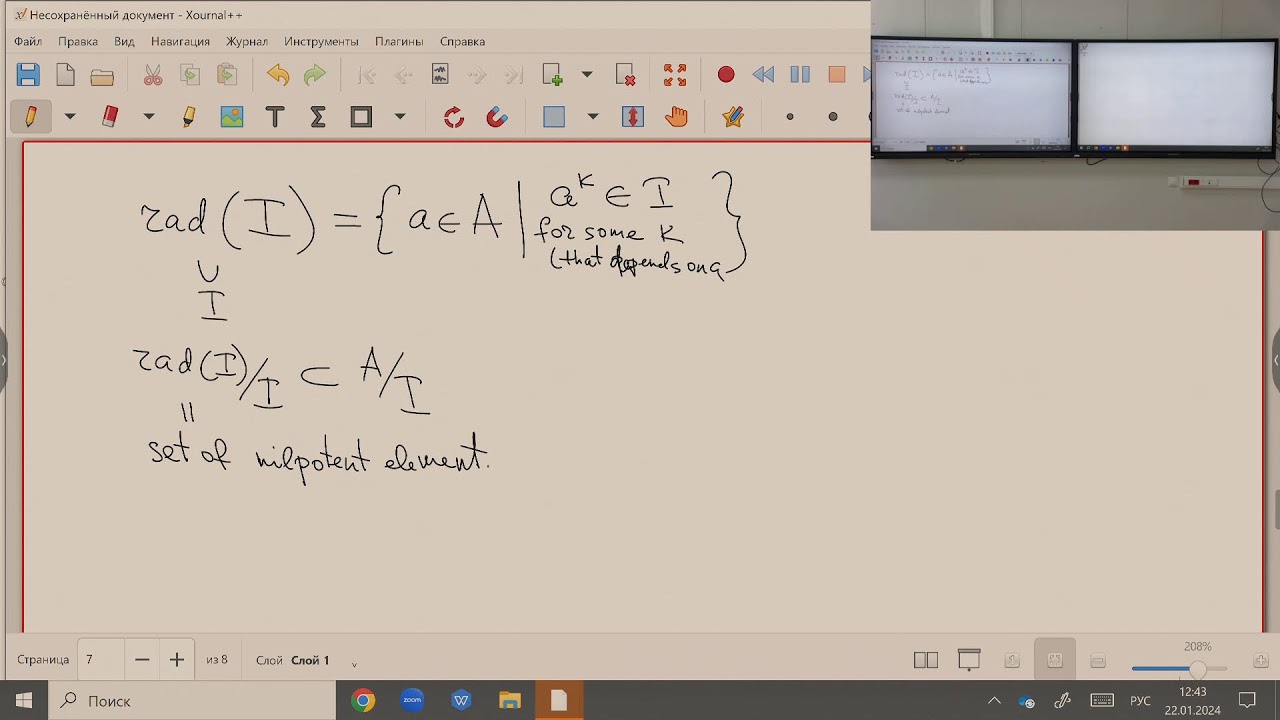 Несохранённый документ - Xournal++
Файл Правка Вид Навигация Журнал Инструменты Плагины Справка
rad(I) = { a ∈ A | a^k ∈ I
for some k
(that depends on a }
∪
I
rad(I)/I ⊂ A/I
||
set of nilpotent element.
Страница 7 из 8 Слой Слой 1 208%
Поиск
zoom
W
РУС
12:43
22.01.2024